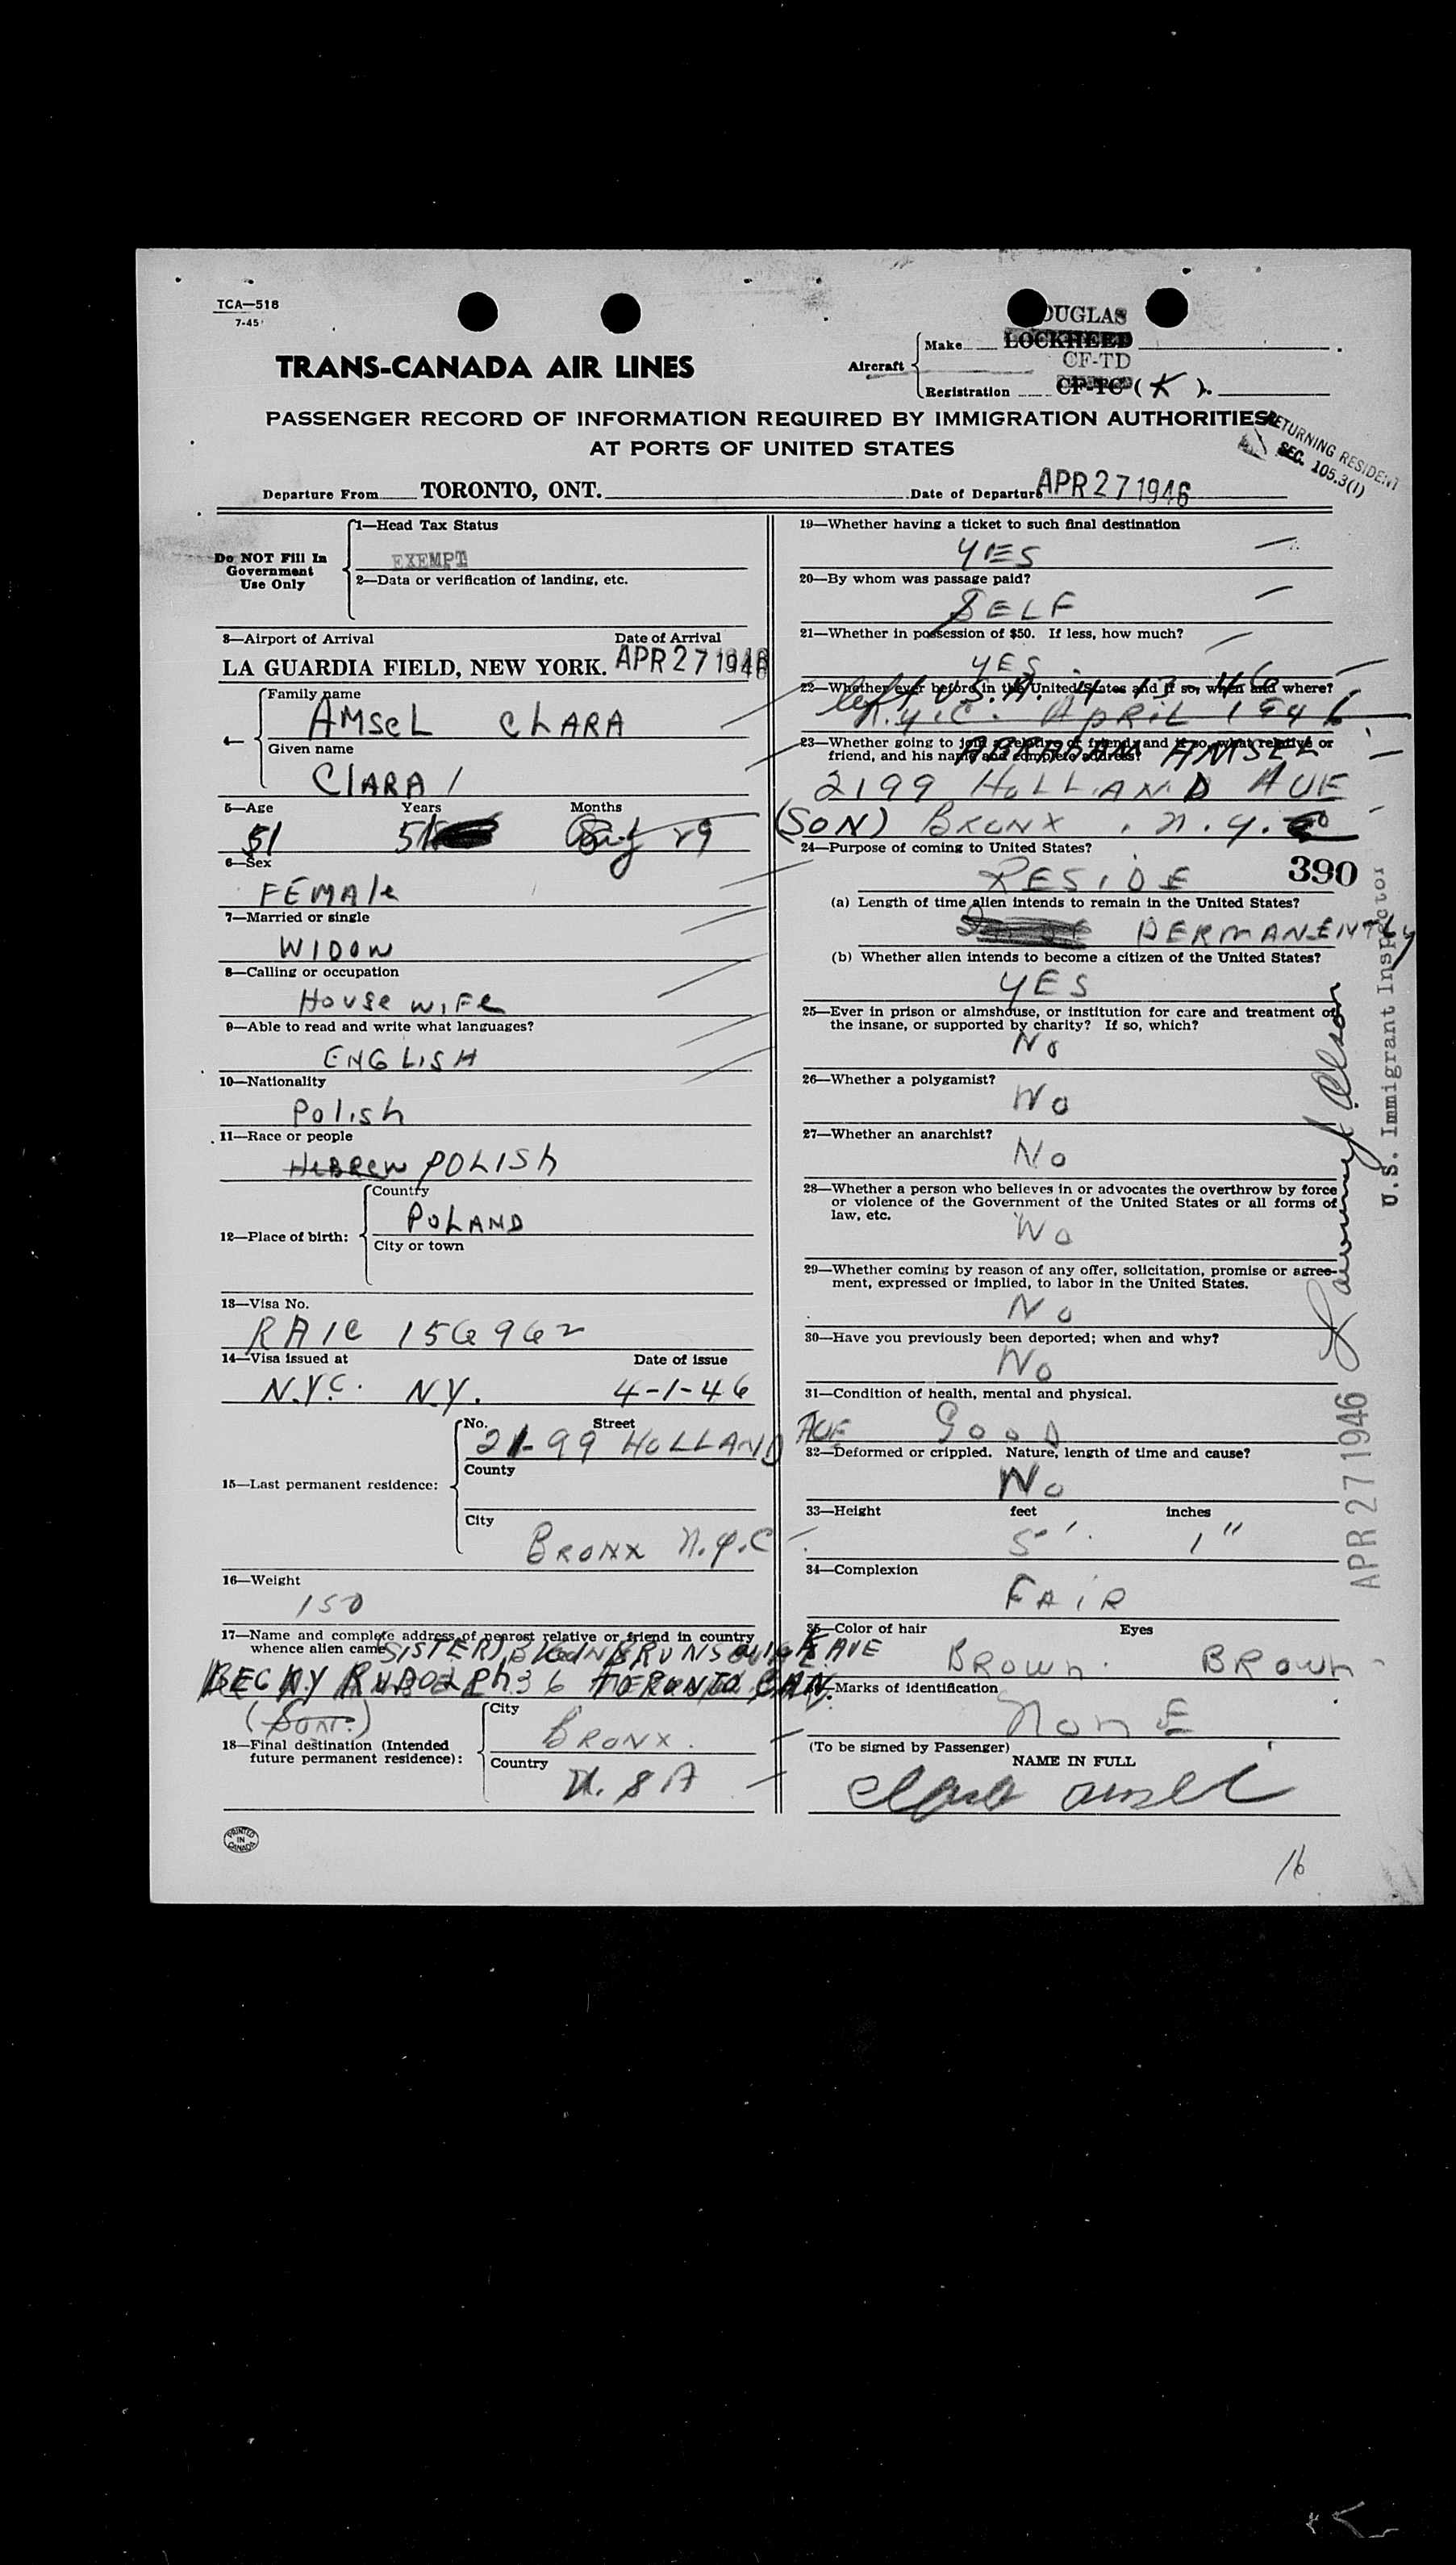 TCA—518
7-45
TRANS-CANADA AIR LINES
Aircraft
Make DOUGLAS
LOCKHEED
CF-TD
Registration CF-TC (K).
PASSENGER RECORD OF INFORMATION REQUIRED BY IMMIGRATION AUTHORITIES
AT PORTS OF UNITED STATES
RETURNING RESIDENT
SEC. 105.3(1)
Departure From TORONTO, ONT. Date of Departure APR 27 1946
Do NOT Fill In
Government
Use Only
1—Head Tax Status
EXEMPT
2—Data or verification of landing, etc.
3—Airport of Arrival Date of Arrival
LA GUARDIA FIELD, NEW YORK. APR 27 1946
4—
Family name
AMSEL CLARA
Given name
CLARA
5—Age Years Months
51 51 29
6—Sex
FEMALE
7—Married or single
WIDOW
8—Calling or occupation
HOUSE WIFE
9—Able to read and write what languages?
ENGLISH
10—Nationality
Polish
11—Race or people
HEBREW POLISH
12—Place of birth:
Country
POLAND
City or town
13—Visa No.
RAIC 156962
14—Visa issued at Date of issue
N.Y.C. N.Y. 4-1-46
15—Last permanent residence:
No. Street
2199 HOLLAND AVE
County
City
BRONX N.Y.C
16—Weight
150
17—Name and complete address of nearest relative or friend in country
whence alien came
(SISTER) BRUNSWICK AVE
BECKY RUDOLPH 36 TORONTO CAN.
18—Final destination (Intended
future permanent residence):
City
BRONX.
Country
U.S A
PRINTED
IN
CANADA
19—Whether having a ticket to such final destination
YES
20—By whom was passage paid?
SELF
21—Whether in possession of $50. If less, how much?
YES.
22—Whether ever before in the United States and if so, when and where?
left U.S.A. 4-13-46
N.Y.C. APRIL 1946
23—Whether going to join a relative or friend; and if so, what relative or
friend, and his name and complete address?
ABRAHAM AMSEL
2199 HOLLAND AVE
(SON) BRONX. N.Y.
24—Purpose of coming to United States?
RESIDE
390
(a) Length of time alien intends to remain in the United States?
PERMANENTLY
(b) Whether alien intends to become a citizen of the United States?
YES
25—Ever in prison or almshouse, or institution for care and treatment of
the insane, or supported by charity? If so, which?
No
26—Whether a polygamist?
No
27—Whether an anarchist?
No
28—Whether a person who believes in or advocates the overthrow by force
or violence of the Government of the United States or all forms of
law, etc.
No
29—Whether coming by reason of any offer, solicitation, promise or agree-
ment, expressed or implied, to labor in the United States.
No
30—Have you previously been deported; when and why?
No
31—Condition of health, mental and physical.
GOOD
32—Deformed or crippled. Nature, length of time and cause?
No
33—Height feet inches
5' 1"
34—Complexion
FAIR
35—Color of hair Eyes
BROWN. BROWN
36—Marks of identification
NONE
(To be signed by Passenger)
NAME IN FULL
Clara Amsel
16
U.S. Immigrant Inspector
APR 27 1946